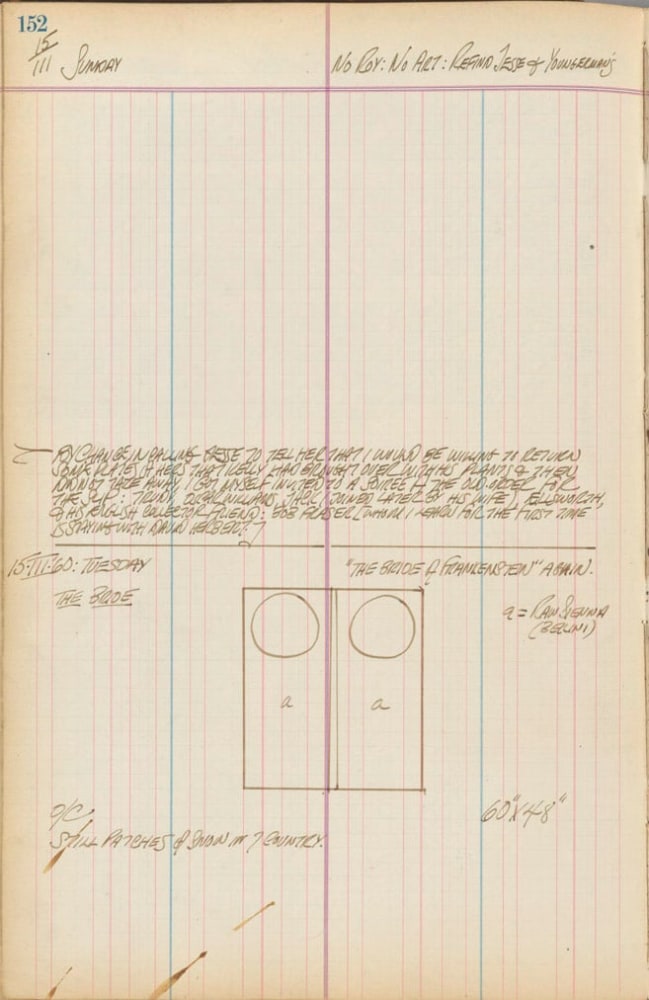 152
15/III SUNDAY
NO ROY: NO ART: REFIND JESSE & YOUNGERMAN'S
BY CHANCE IN CALLING JESSE TO TELL HER THAT I WOULD BE WILLING TO RETURN
SOME PLATES OF HERS THAT KELLY HAD BROUGHT OVER WITH HIS PLANTS & THEN
DID NOT TAKE AWAY I GOT MYSELF INVITED TO A SOIREE OF THE OLD ORDER FOR
THE SLIP: TRUDY, OSCAR WILLIAMS, JACK (JOINED LATER BY HIS WIFE), ELLSWORTH,
& HIS ENGLISH COLLECTOR FRIEND: BOB FRASER (WHOM I LEARN FOR THE FIRST TIME
IS STAYING WITH DAVID HERBERT.)
15-III-60: TUESDAY
"THE BRIDE OF FRANKENSTEIN" AGAIN.
THE BRIDE
a = RAW SIENNA
(BELLINI)
a a
O/C
60" X 48"
STILL PATCHES OF SNOW IN COUNTRY.